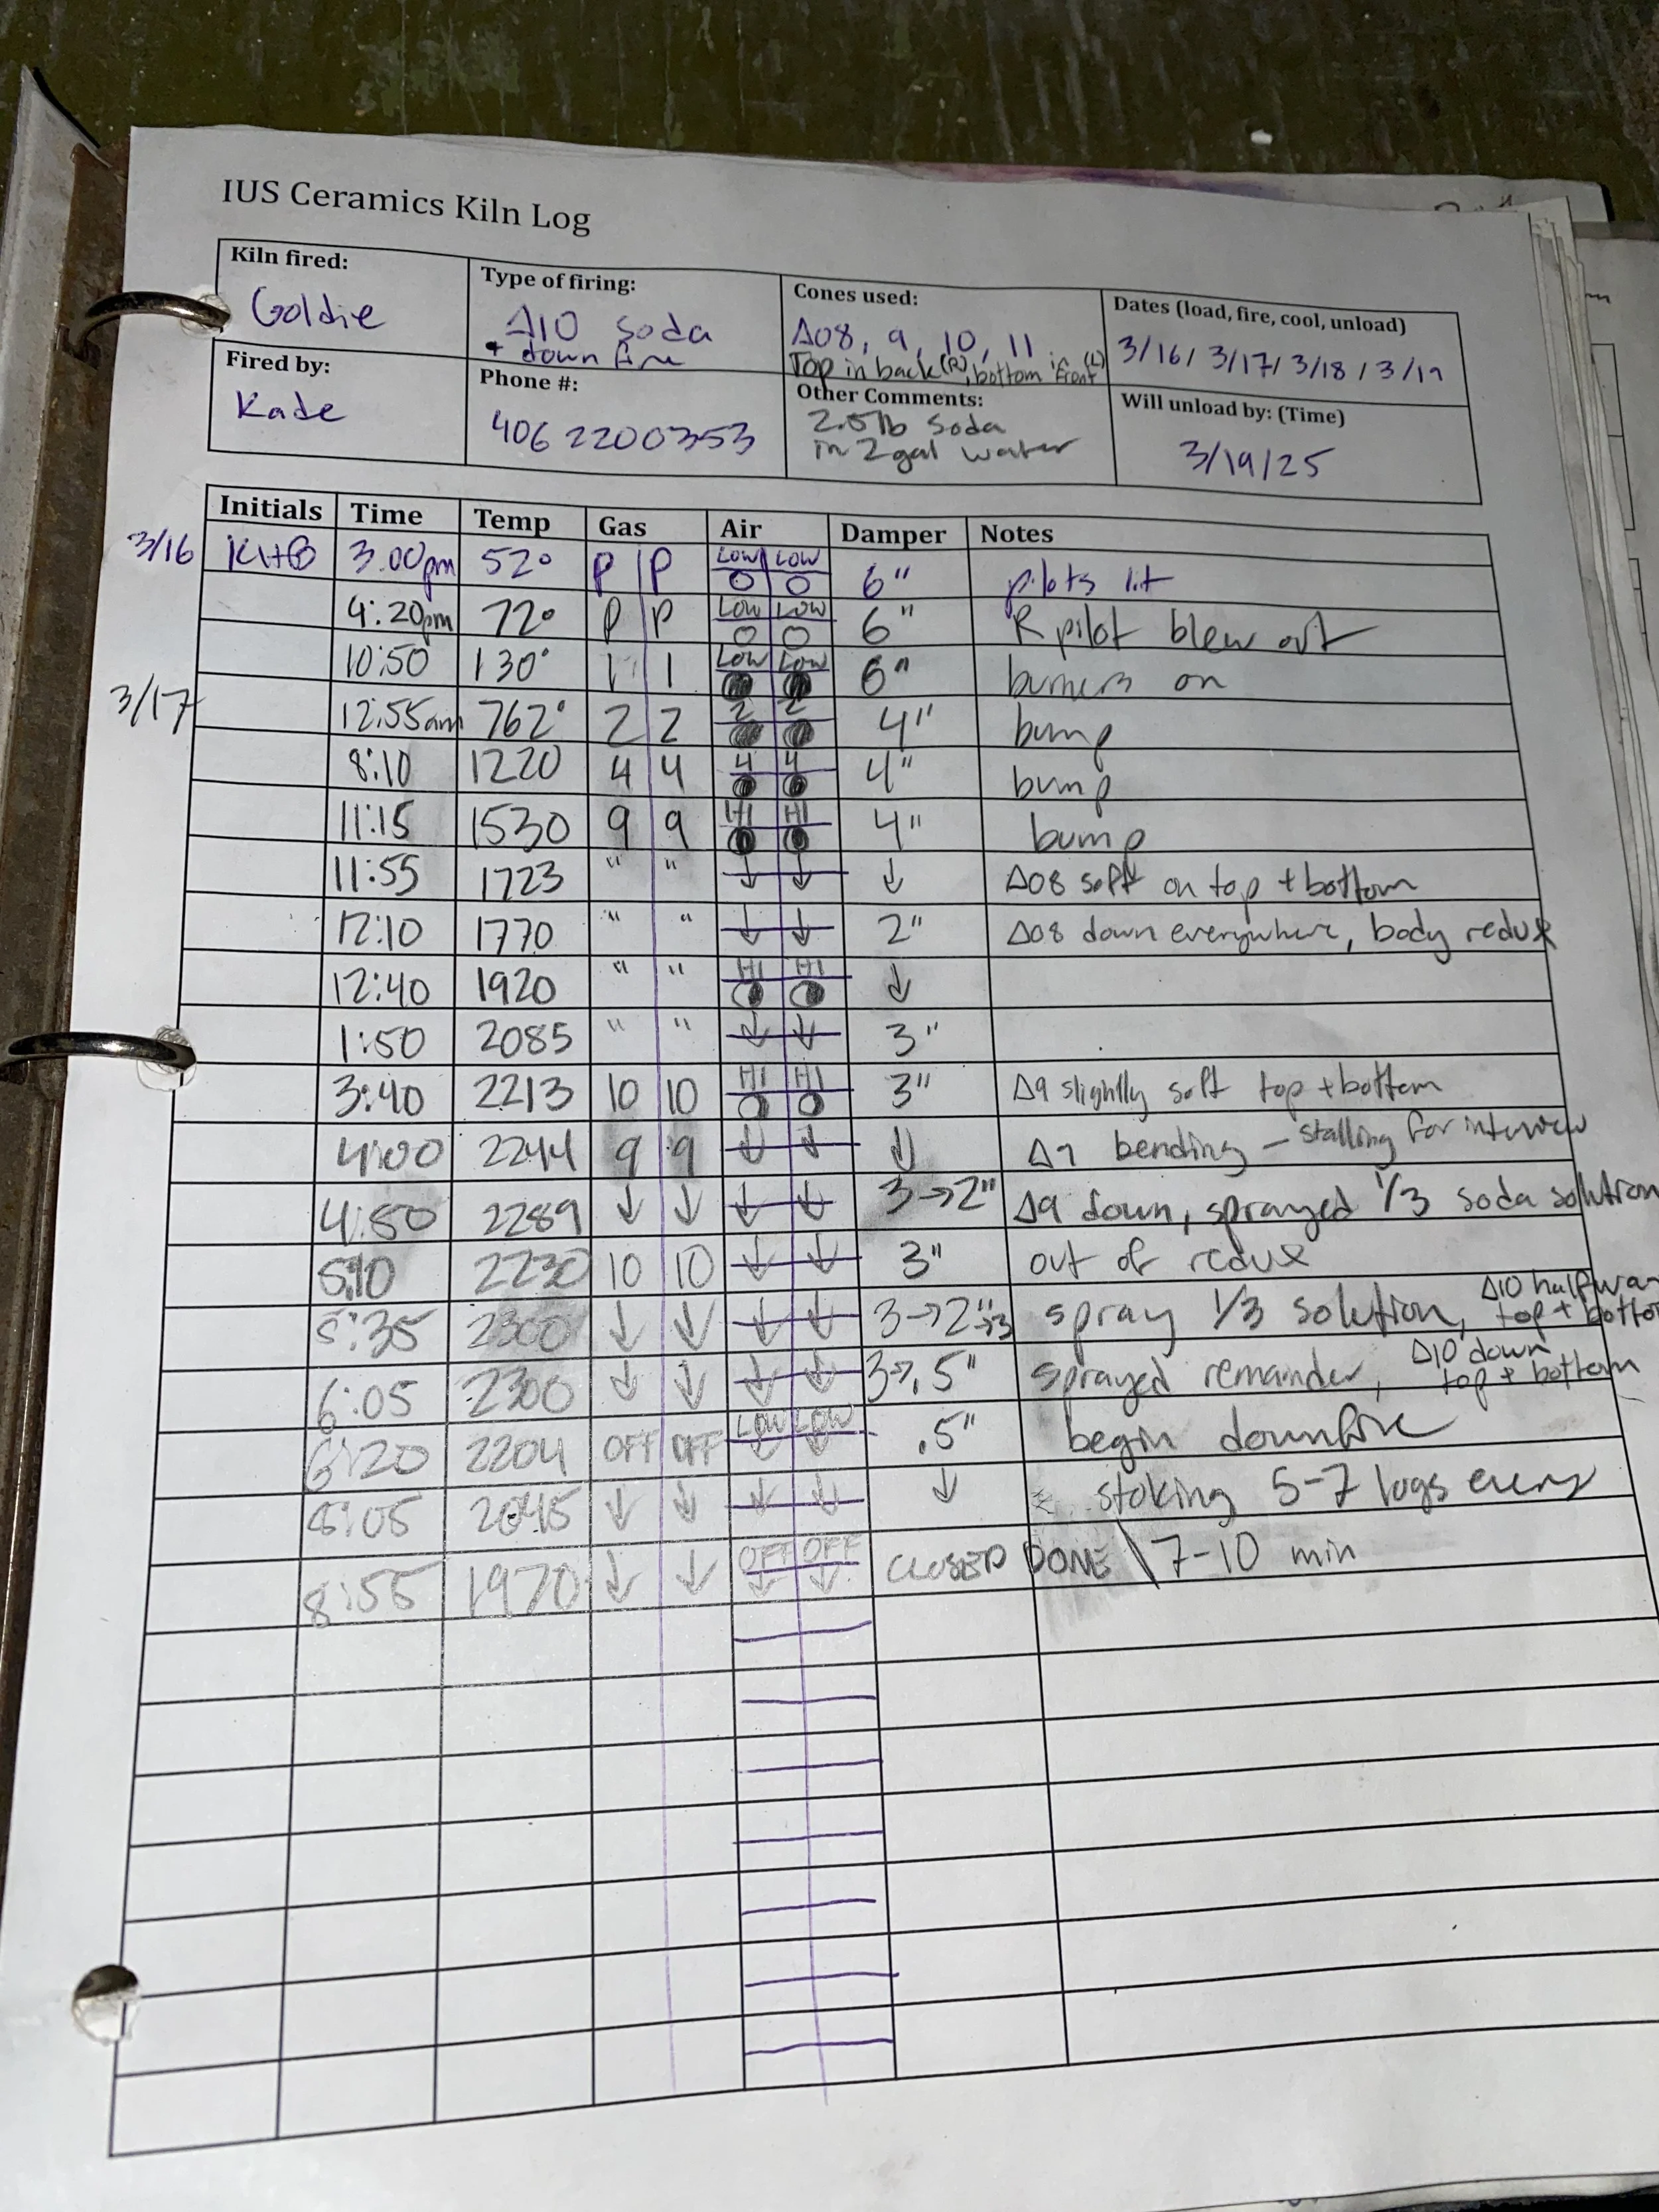 IUS Ceramics Kiln Log
Kiln fired: Goldie
Type of firing: Δ10 Soda
+ down fire
Cones used: Δ08, 9, 10, 11
Top in back (R), bottom in front (L)
Dates (load, fire, cool, unload)
3/16/ 3/17/ 3/18 / 3/19
Fired by: Kade
Phone #: 406 2200353
Other Comments: 2.5lb Soda
in 2 gal water
Will unload by: (Time)
3/19/25
Initials Time Temp Gas Air Damper Notes
3/16 KHB 3:00pm 52° P P LOW LOW O O 6" pilots lit
4:20pm 72° P P LOW LOW O O 6" R pilot blew out
10:50 130° 1 1 LOW LOW 6" burners on
3/17 12:55am 762° 2 2 2 2 4" bump
8:10 1220 4 4 4 4 4" bump
11:15 1530 9 9 HI HI 4" bump
11:55 1723 " " ↓ ↓ ↓ Δ08 soft on top + bottom
12:10 1770 " " ↓ ↓ 2" Δ08 down everywhere, body redux
12:40 1920 " " HI HI ↓
1:50 2085 " " ↓ ↓ 3"
3:40 2213 10 10 HI HI 3" Δ9 slightly soft top + bottom
4:00 2244 9 9 ↓ ↓ ↓ Δ9 bending – stalling for interview
4:50 2289 ↓ ↓ ↓ ↓ 3→2" Δ9 down, sprayed 1/3 soda solution
5:10 2230 10 10 ↓ ↓ 3" out of redux
5:35 2300 ↓ ↓ ↓ ↓ 3→2"→3 spray 1/3 solution, Δ10 halfway top + bottom
6:05 2300 ↓ ↓ ↓ ↓ 3→.5" sprayed remainder, Δ10 down top + bottom
6:20 2204 OFF OFF LOW LOW ↓ ↓ .5" begin downfire
8:05 2045 ↓ ↓ ↓ ↓ ↓ stoking 5-7 logs every
8:55 1970 ↓ ↓ OFF OFF ↓ ↓ CLOSED DONE \ 7-10 min